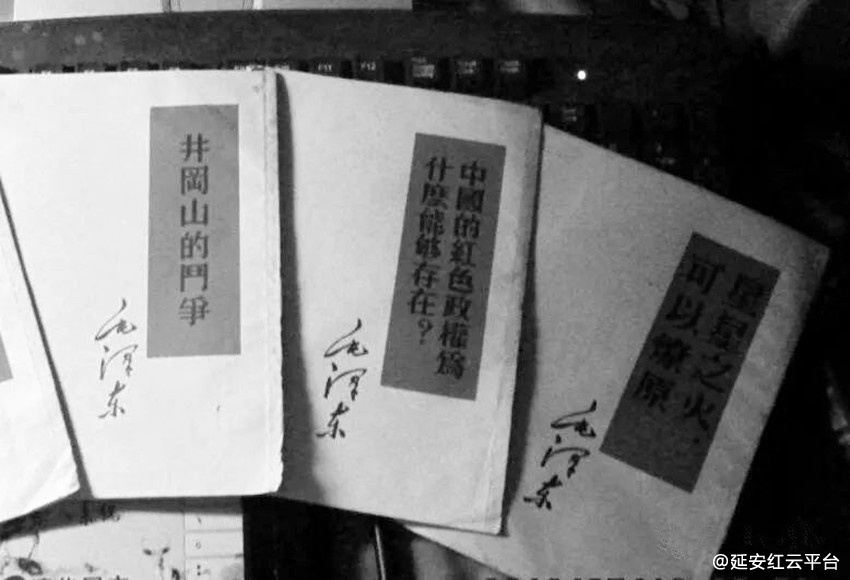 井岡山的鬥爭
毛澤东
中國的紅色政權爲
什麽能够存在？
毛澤东
星星之火，
可以燎原
毛澤东
F11
F12
@延安红云平台